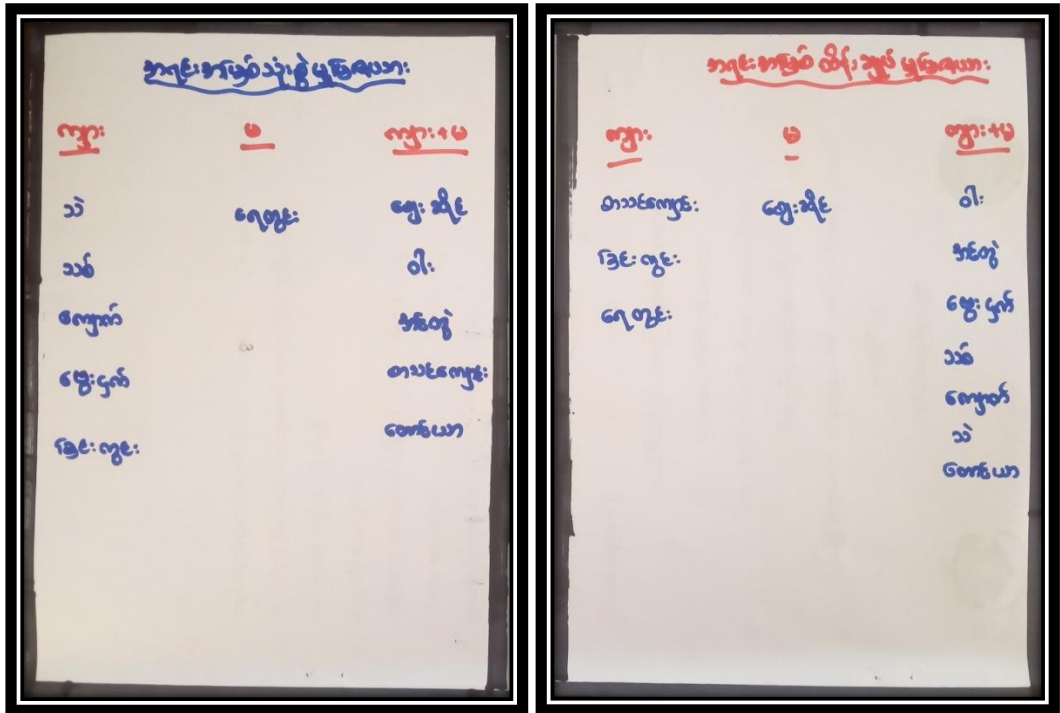 အရင်းအမြစ်သုံးစွဲမှုပြဇယား
ကျား မ ကျား+မ
သဲ ရေတွင်း ဈေးဆိုင်
သစ် ဝါး
ကျောက် အင်တွဲ
မွေးငှက် စာသင်ကျောင်း
ခြင်းကွင်း တောင်ယာ
အရင်းအမြစ်ထိန်းချုပ်မှုပြဇယား
ကျား မ ကျား+မ
စာသင်ကျောင်း ဈေးဆိုင် ဝါး
ခြင်းကွင်း အင်တွဲ
ရေတွင်း မွေးငှက်
သစ်
ကျောက်
သဲ
တောင်ယာ